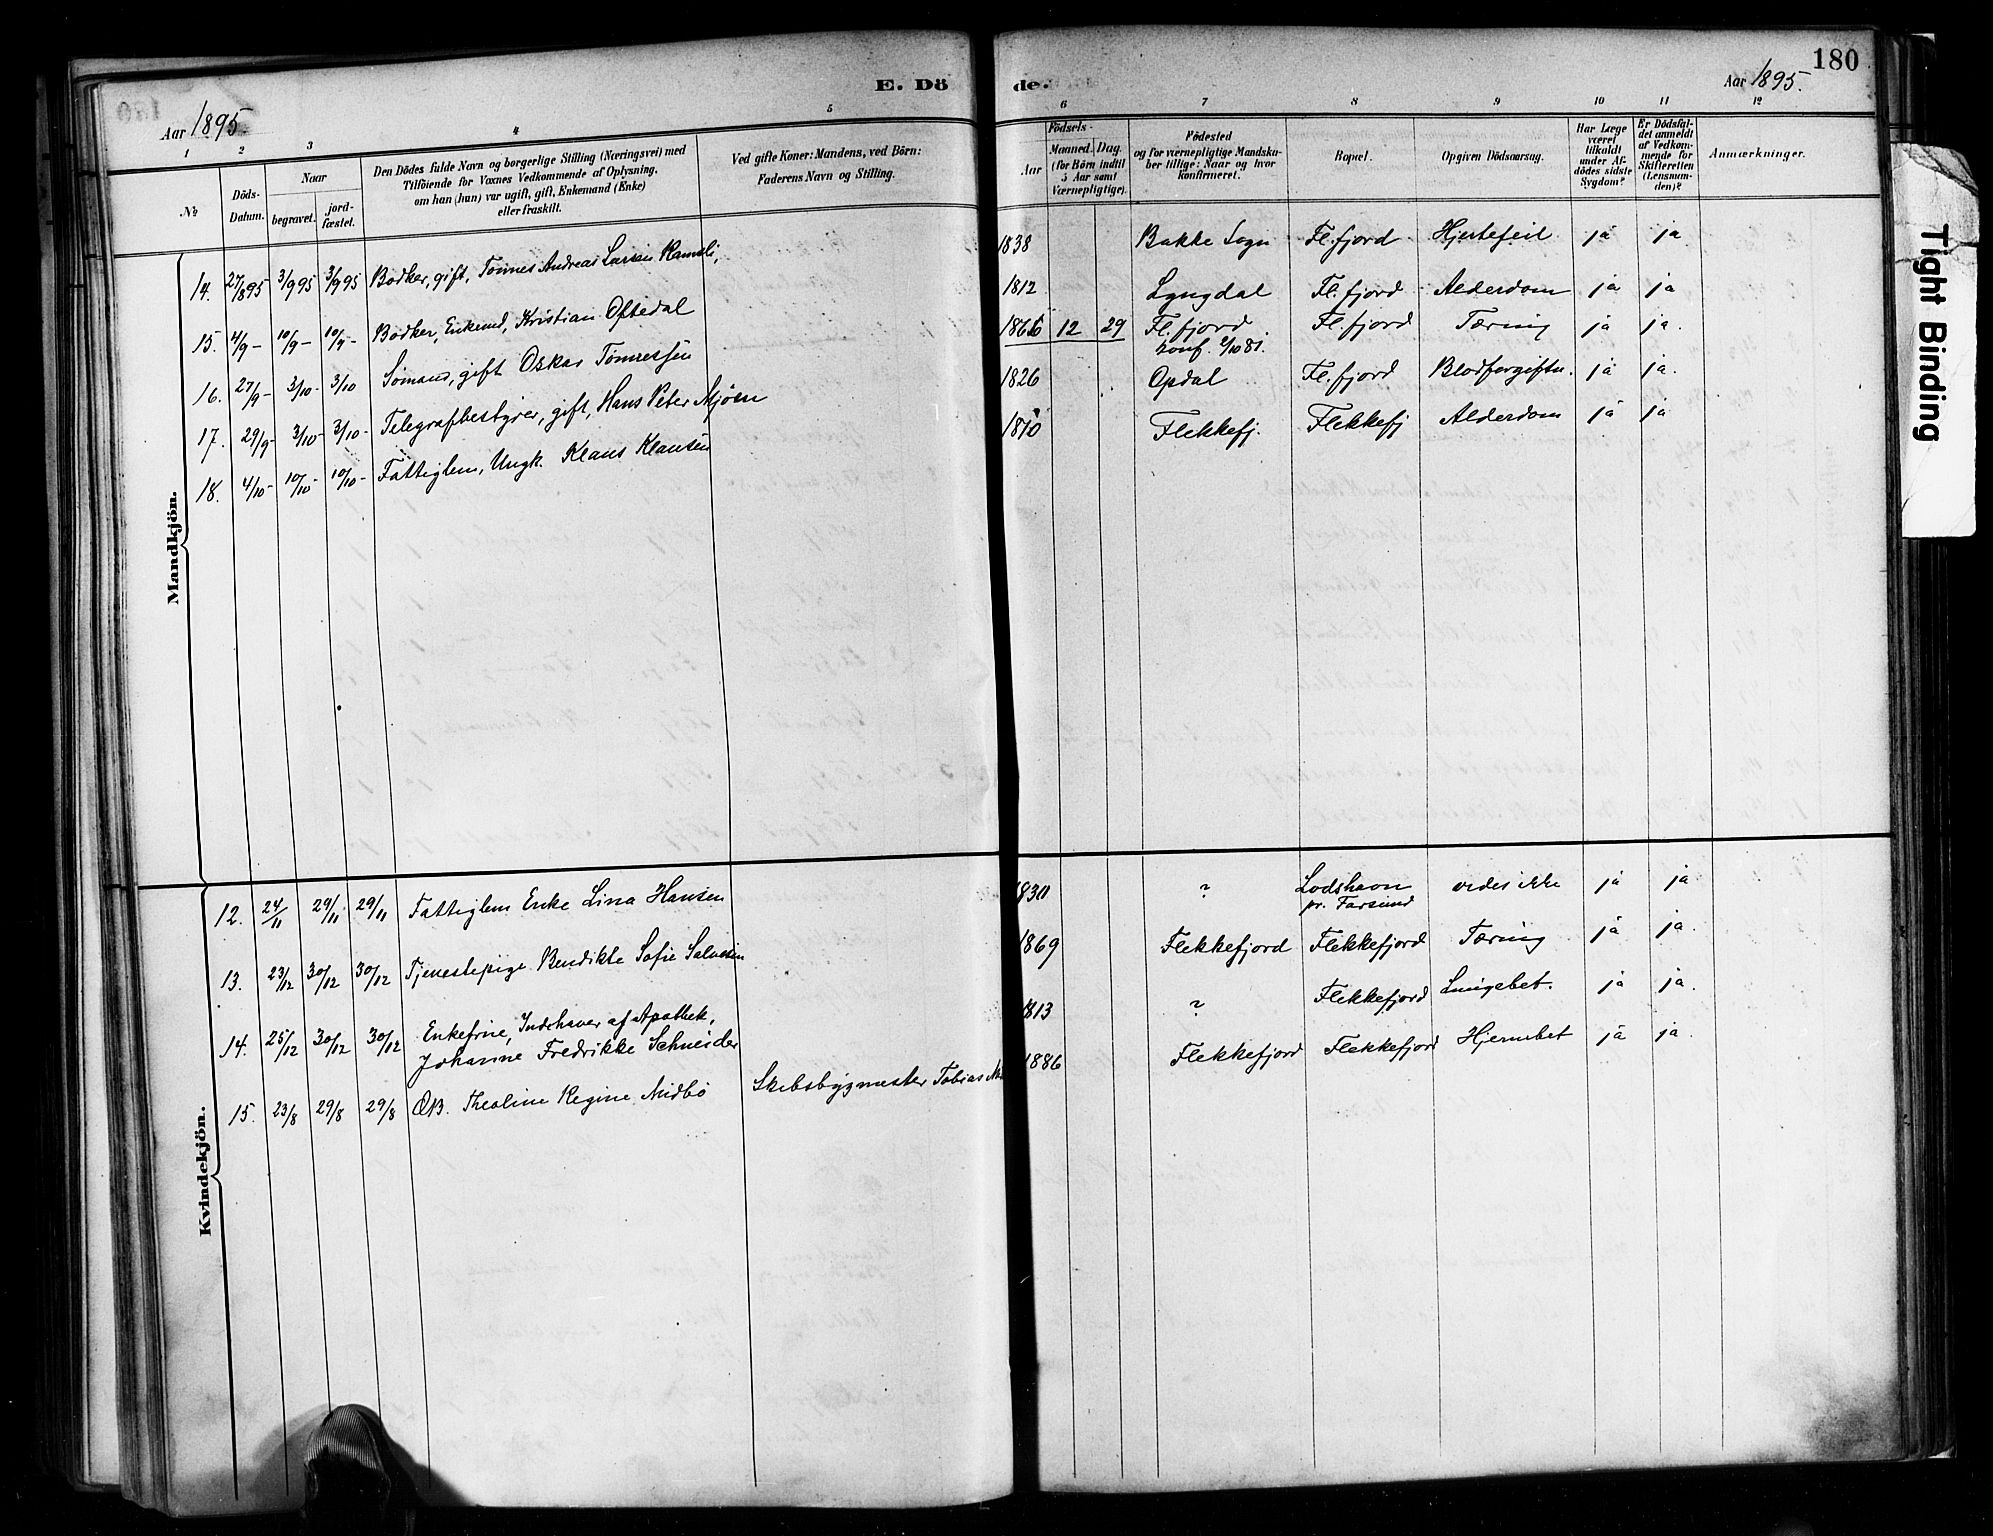 E. Dö de.
180
Aar 1895.
Aar 1895.
1 2 3 4 5 6 7 8 9 10 11 12
№
Döds-Datum.
Naar
begravet.
jord-fæstet.
Den Dödes fulde Navn og borgerlige Stilling (Næringsvei) med
Tilföiende for Voxnes Vedkommende af Oplysning,
om han (hun) var ugift, gift, Enkemand (Enke)
eller fraskilt.
Ved gifte Koner: Mandens, ved Börn:
Faderens Navn og Stilling.
Födsels-
Aar
Maaned. Dag.
(for Börn indtil
5 Aar samt
Værnepligtige).
Födested
og for værnepligtige Mandska-
ber tillige: Naar og hvor
konfirmeret.
Bopæl.
Opgiven Dödsaarsag.
Har Læge
været
tilkaldt
under Af-
dödes sidste
Sygdom?
Er Dödsfal-
det anmeldt
af Vedkom-
mende for
Skifteretten
(Lensmæn-
den)?
Anmærkninger.
Mandkjön.
14. 27/895 3/995 3/995 Bødker, gift, Tønnes Andreas Larsen Ramsli, 1838 Bakke Sogn Fl.fjord Hjertefeil ja ja
15. 4/9- 10/9- 10/9- Bødker, Enkemd, Kristian Oftedal 1812 Lyngdal Fl.fjord Alderdom ja ja
16. 27/9- 3/10- 3/10 Sømand, gift Oskar Tønnessen 1866 12 29 Fl.fjord Fl.fjord Tæring ja ja.
konf. 2/10 81.
17. 29/9- 3/10- 3/10- Telegrafbestyrer, gift, Hans Peter Mjøen 1826 Opdal Fl.fjord Blodforgiftn. ja ja.
18. 4/10- 10/10- 10/10- Fattiglem, Ungk. Klaus Klausen Flekkefj. Flekkefj Alderdom ja ja
Kvindekjön.
12. 24/11 29/11 29/11 Fattiglem Enke Lina Hansen 1830 ? Lodshavn vides ikke ja ja
pr. Farsund
13. 23/12 30/12 30/12 Tjenestepige Bendikte Sofie Salvesen 1869 Flekkefjord Flekkefjord Tæring ja ja.
14. 25/12 30/12 30/12 Enkefrue, Indehaver af Apothek, 1813 ? Flekkefjord Lungebet. ja ja.
Johanne Fredrikke Schneider
15. 23/8 29/8 29/8 Theoline Regine Midbö Skibsbygmester Tobias 1886 Flekkefjord Flekkefjord Hjernebet ja ja.
Tight Binding